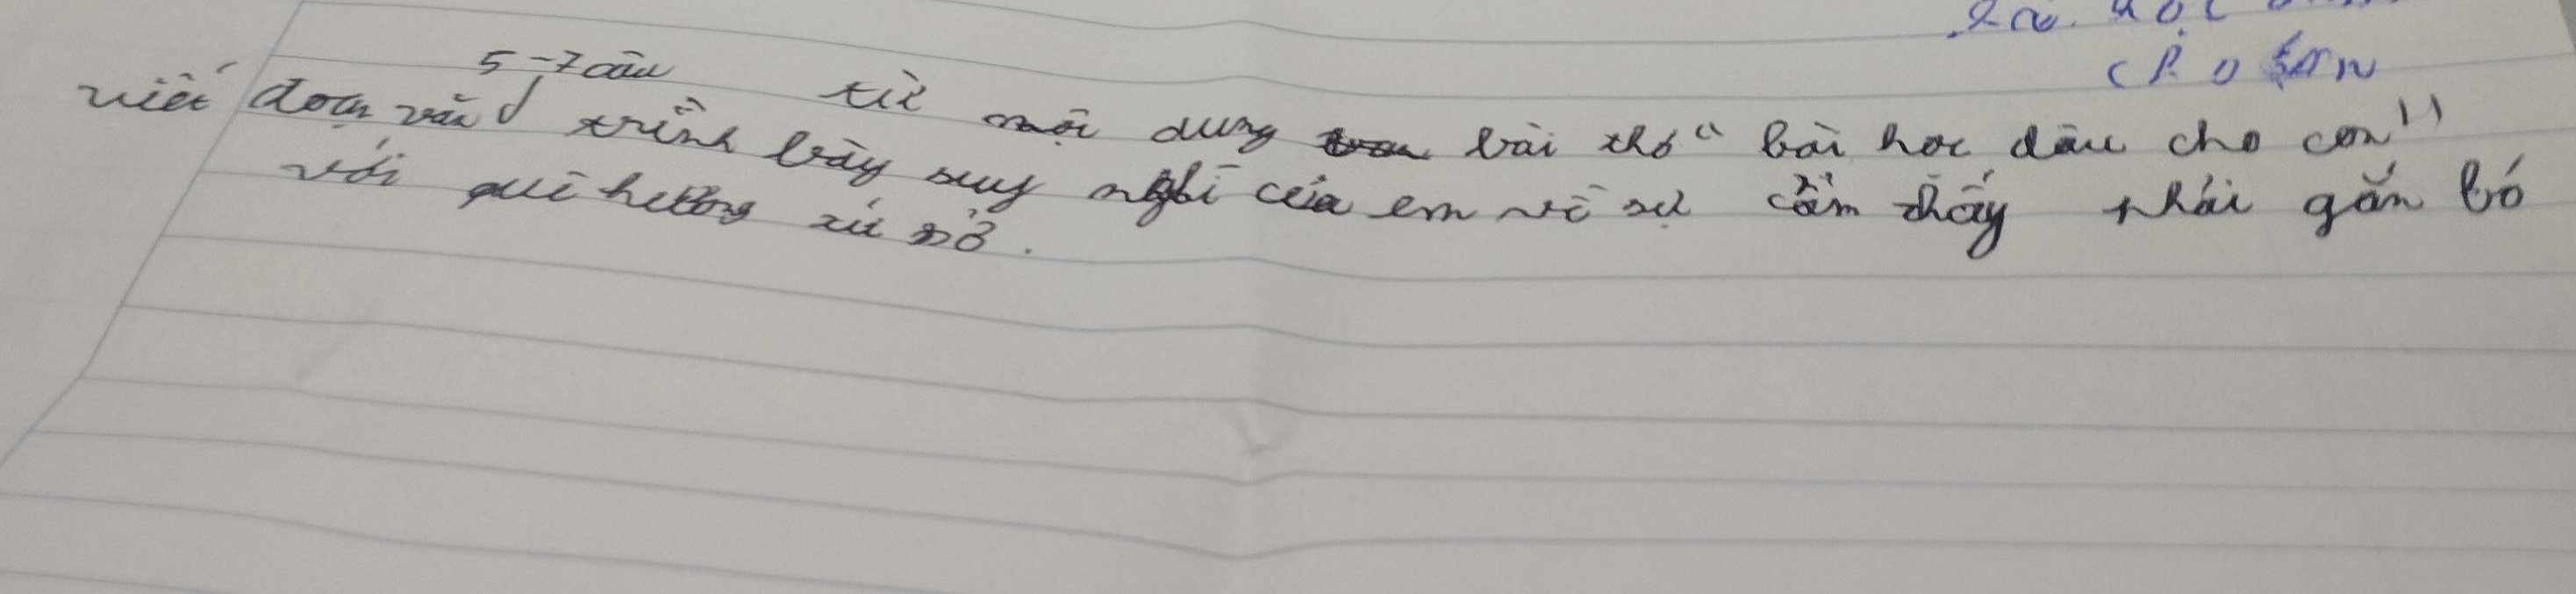 cho con
5-7 câu
viết đoạn văn trình bày từ nội dung bài thơ "bài học đầu cho con"
suy nghĩ của em về sự cần thấy phải gắn bó
với quê hương xứ sở.